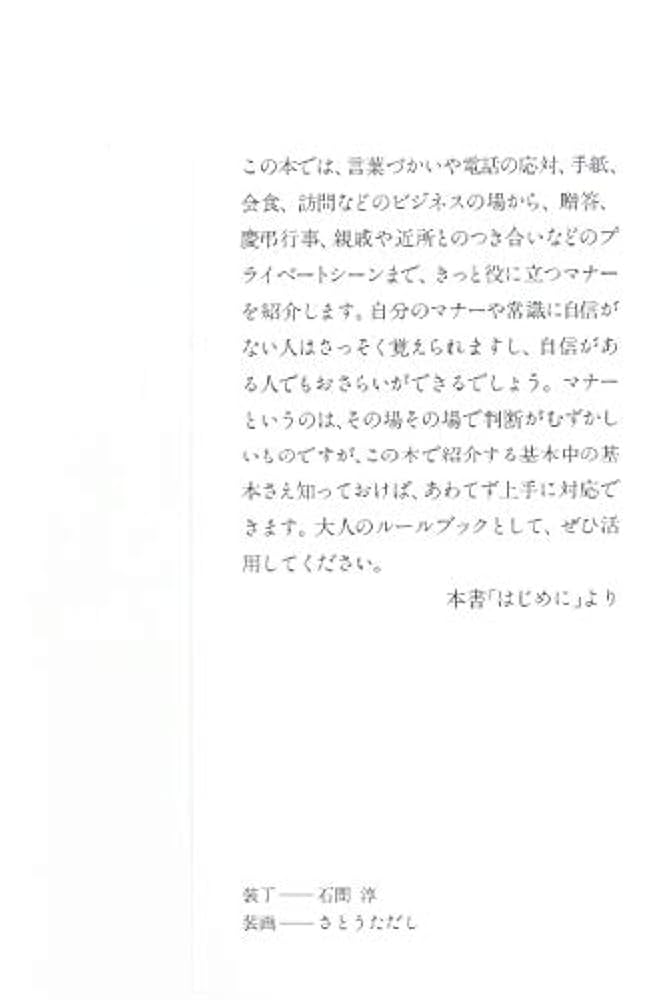 この本では、言葉づかいや電話の応対、手紙、
会食、訪問などのビジネスの場から、贈答、
慶弔行事、親戚や近所とのつき合いなどのプ
ライベートシーンまで、きっと役に立つマナー
を紹介します。自分のマナーや常識に自信が
ない人はさっそく覚えられますし、自信があ
る人でもおさらいができるでしょう。マナー
というのは、その場その場で判断がむずかし
いものですが、この本で紹介する基本中の基
本さえ知っておけば、あわてず上手に対応で
きます。大人のルールブックとして、ぜひ活
用してください。
本書「はじめに」より
装丁――石間 淳
装画――さとうただし